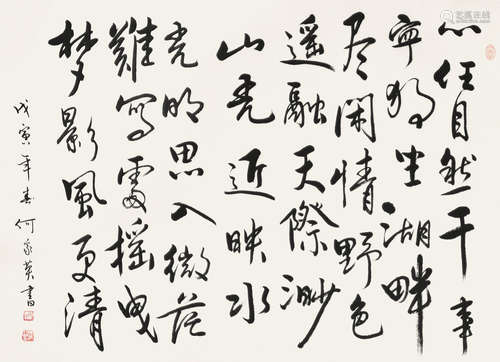 心任自然千事
寧獨坐湖畔
尽閑情野色
遥融天際渺
山 近映水
光明思入微茫
難寫 摇曳
梦影風更清
戊寅年春 何家英書